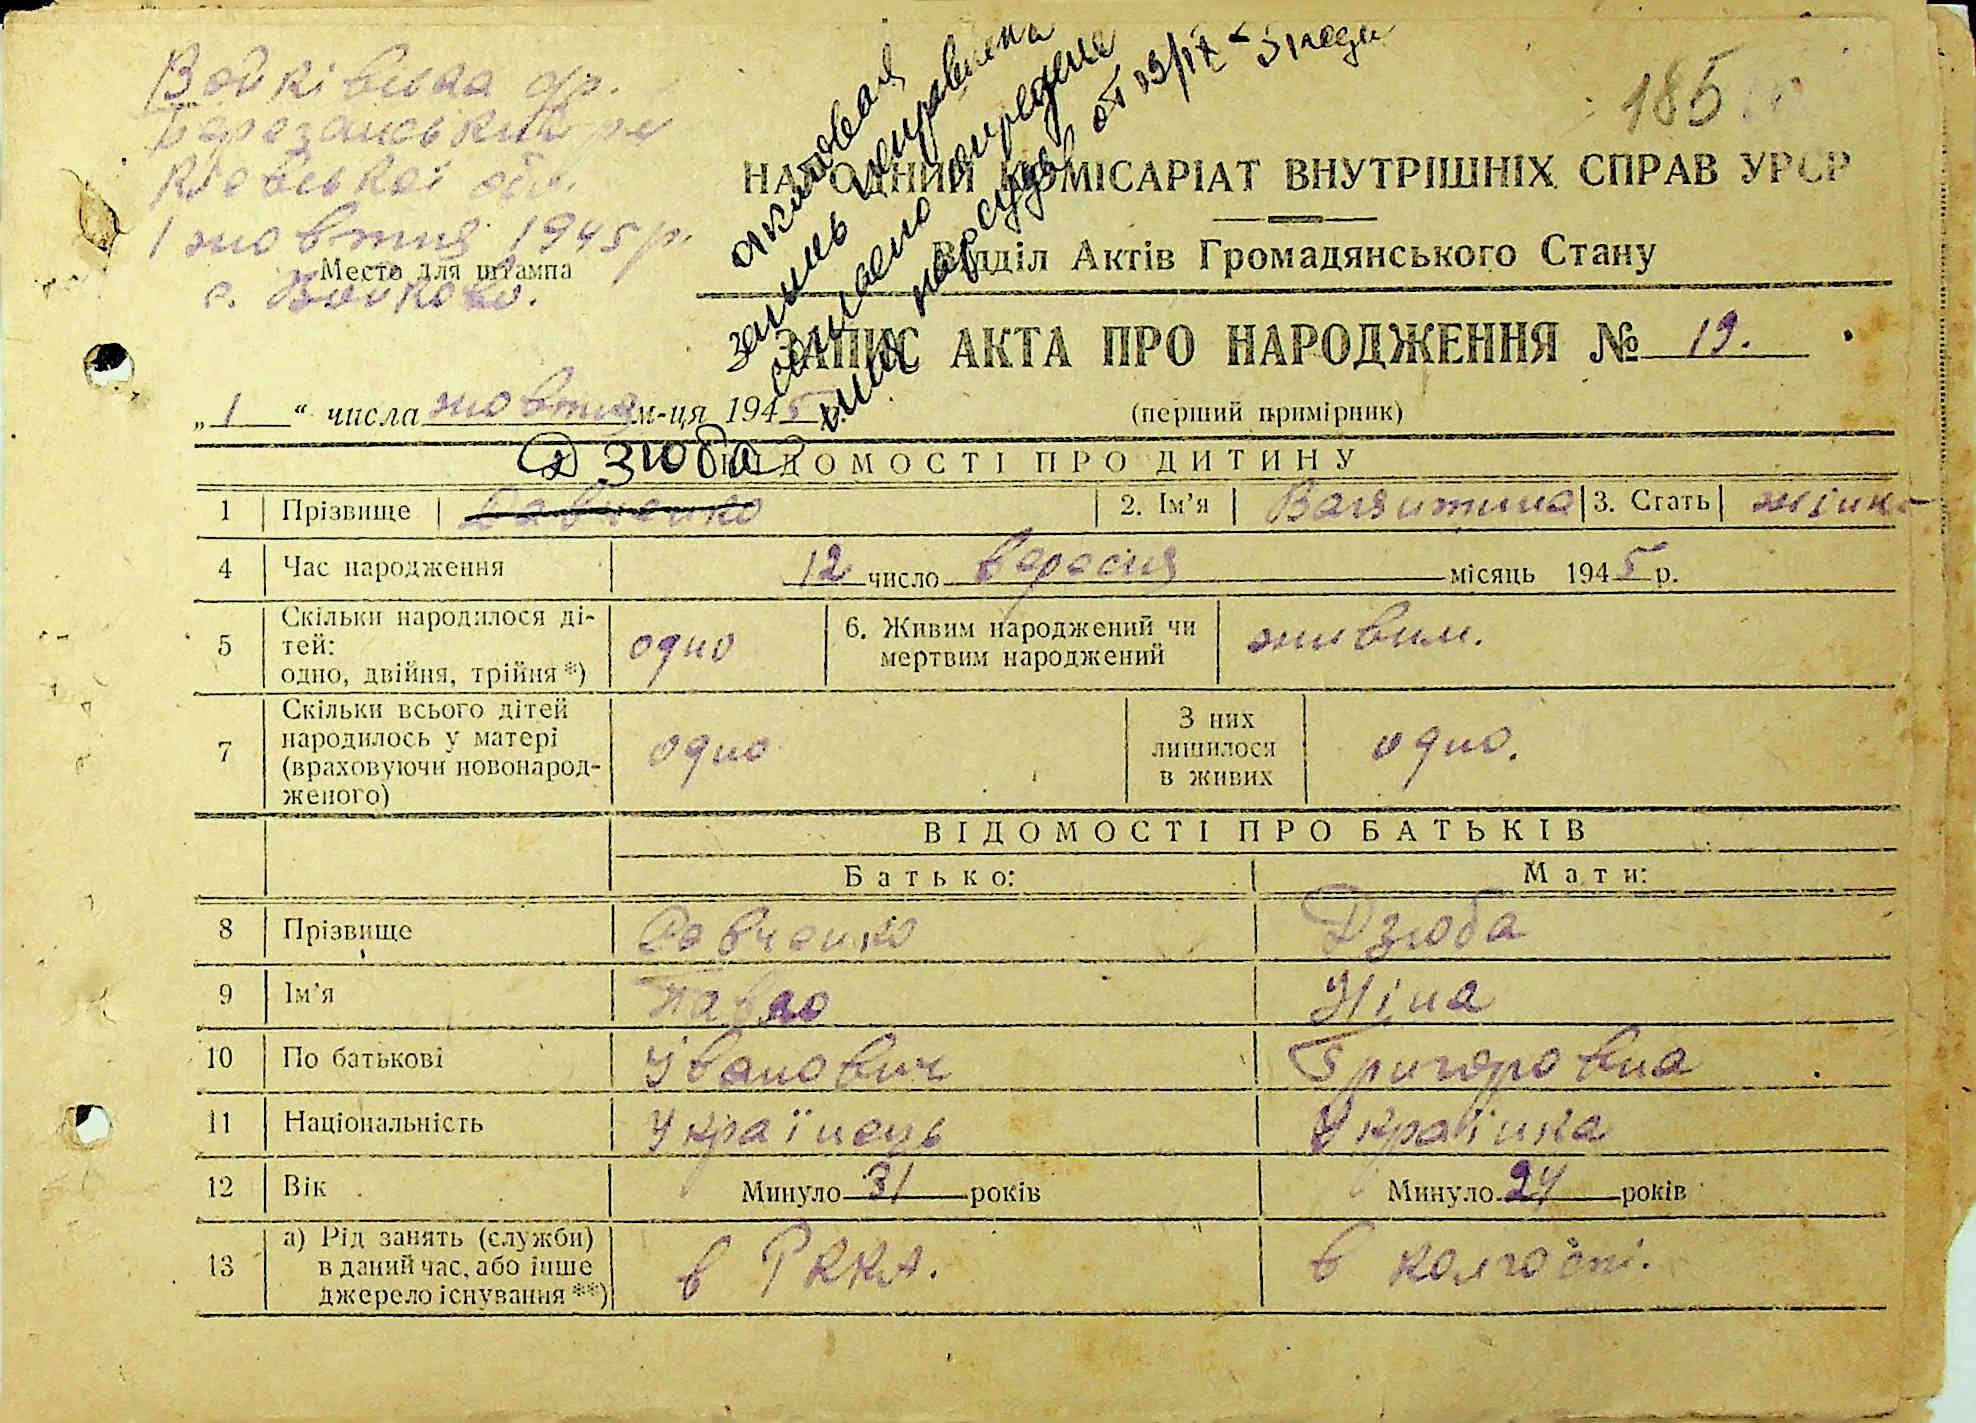 Войківська с/р.
Березанський р-н
Київської обл.
1 жовтня 1945 р.
Место для штампа
с. Войково.
актовая
запись исправлена
согласно
нарсуда от 29/IX-51 года
185
НАРОДНИЙ КОМІСАРІАТ ВНУТРІШНІХ СПРАВ УРСР
Відділ Актів Громадянського Стану
ЗАПИС АКТА ПРО НАРОДЖЕННЯ № 19.
„1“ числа жовтня м-ця 1945 р.
(перший примірник)
Дзюба
ВІДОМОСТІ ПРО ДИТИНУ
1 Прізвище Савченко 2. Ім’я Валянтина 3. Стать жінк.
4 Час народження 12 число вересня місяць 1945 р.
5 Скільки народилося ді-
тей:
одно, двійня, трійня *) одно 6. Живим народжений чи
мертвим народжений живим.
7 Скільки всього дітей
народилось у матері
(враховуючи новонарод-
женого) одно З них
лишилося
в живих одно.
ВІДОМОСТІ ПРО БАТЬКІВ
Батько: Мати:
8 Прізвище Савченко Дзюба
9 Ім’я Павло Ніна
10 По батькові Іванович Григоровна
11 Національність Українець Українка
12 Вік Минуло 31 років Минуло 24 років
13 а) Рід занять (служби)
в даний час, або інше
джерело існування **) в РККА. в колгоспі.